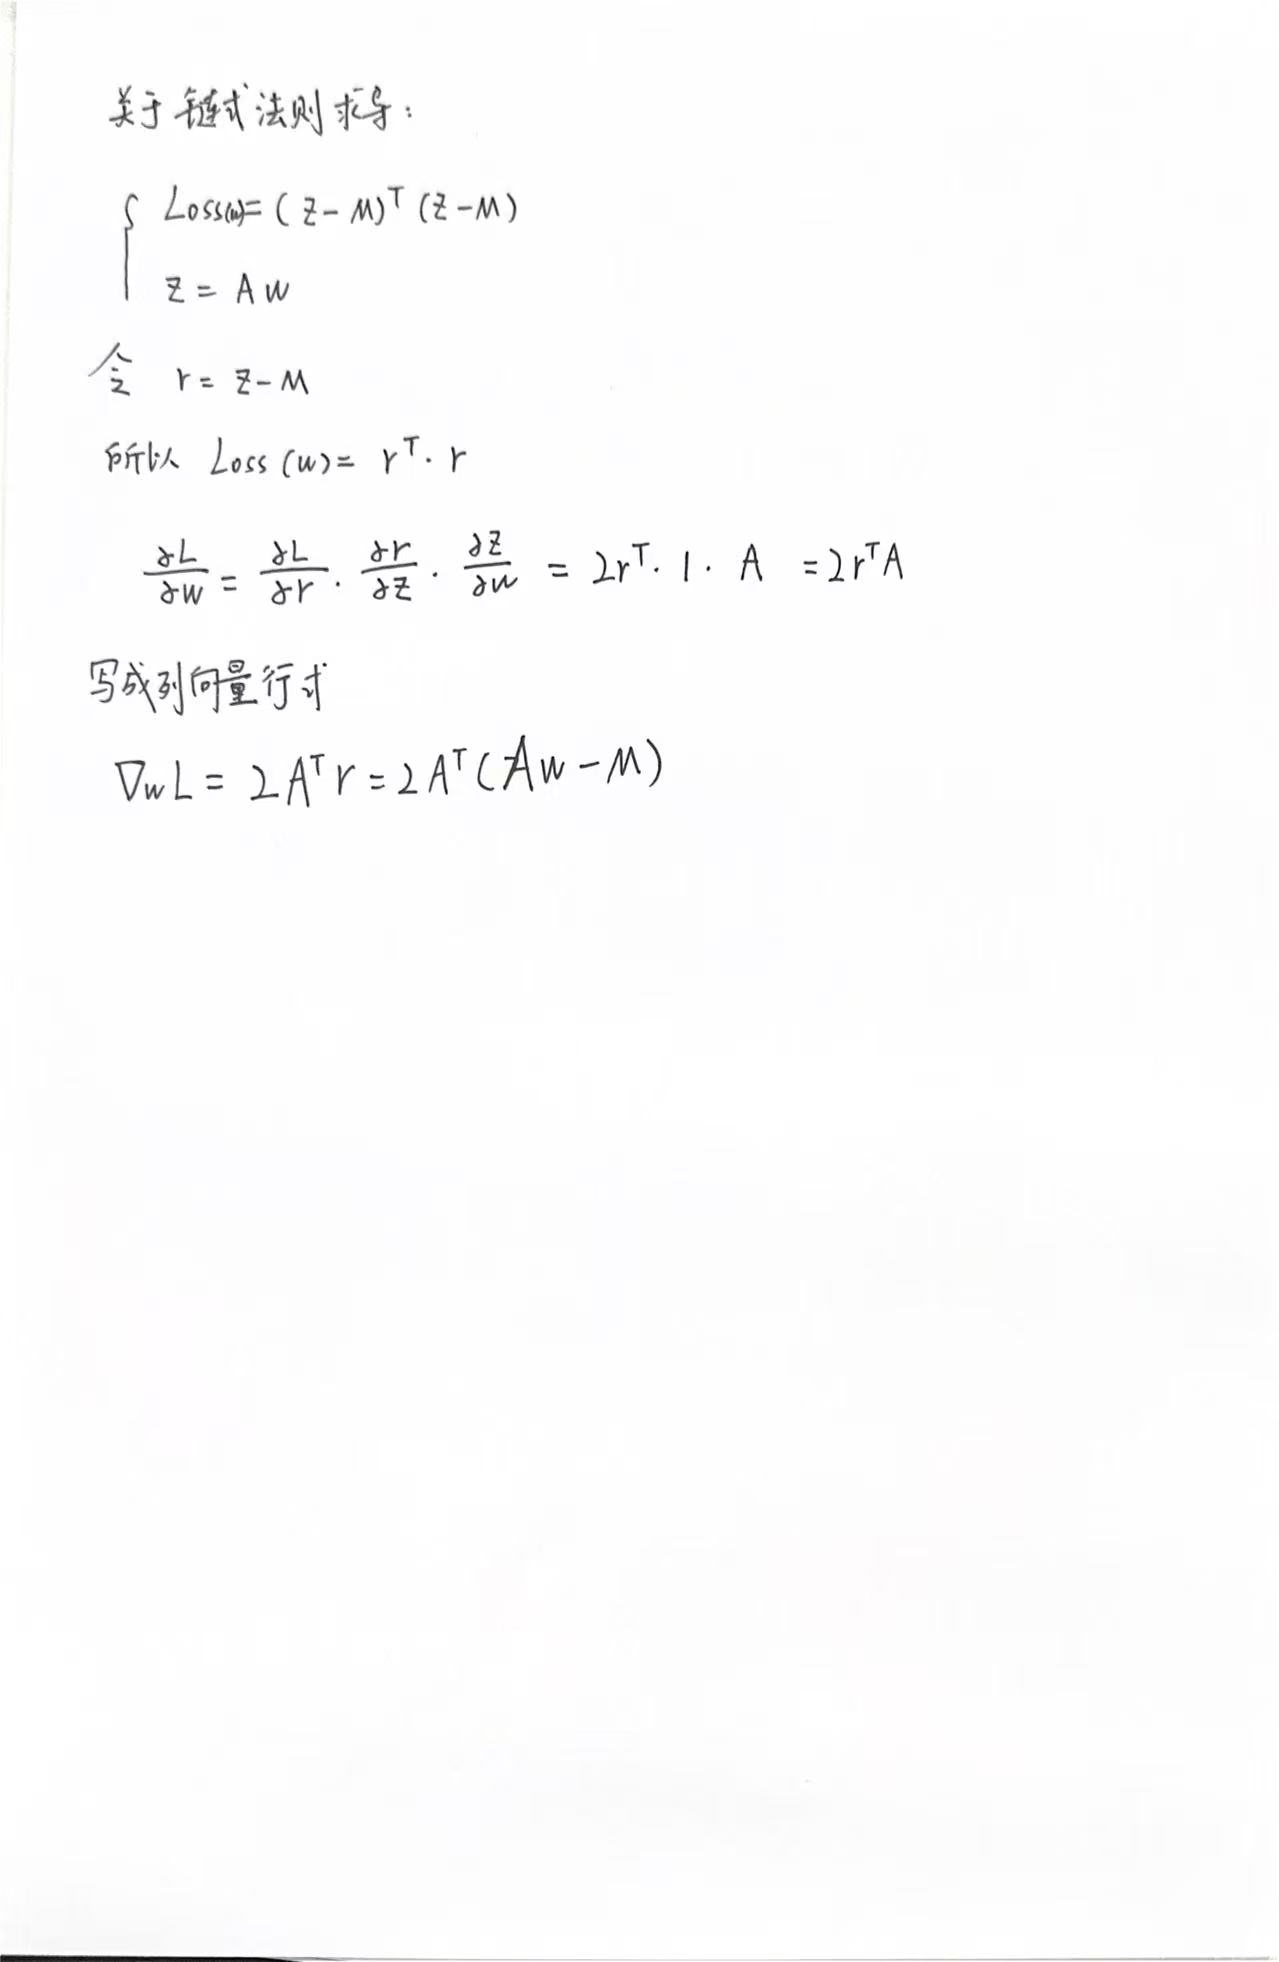 关于链式法则求导：
Loss(w)= (z-M)ᵀ (z-M)
z = Aw
令 r = z-M
所以 Loss (w) = rᵀ· r
∂L/∂w = ∂L/∂r · ∂r/∂z · ∂z/∂w = 2rᵀ· 1 · A = 2rᵀA
写成列向量行式
∇wL = 2Aᵀr = 2Aᵀ(Aw-M)